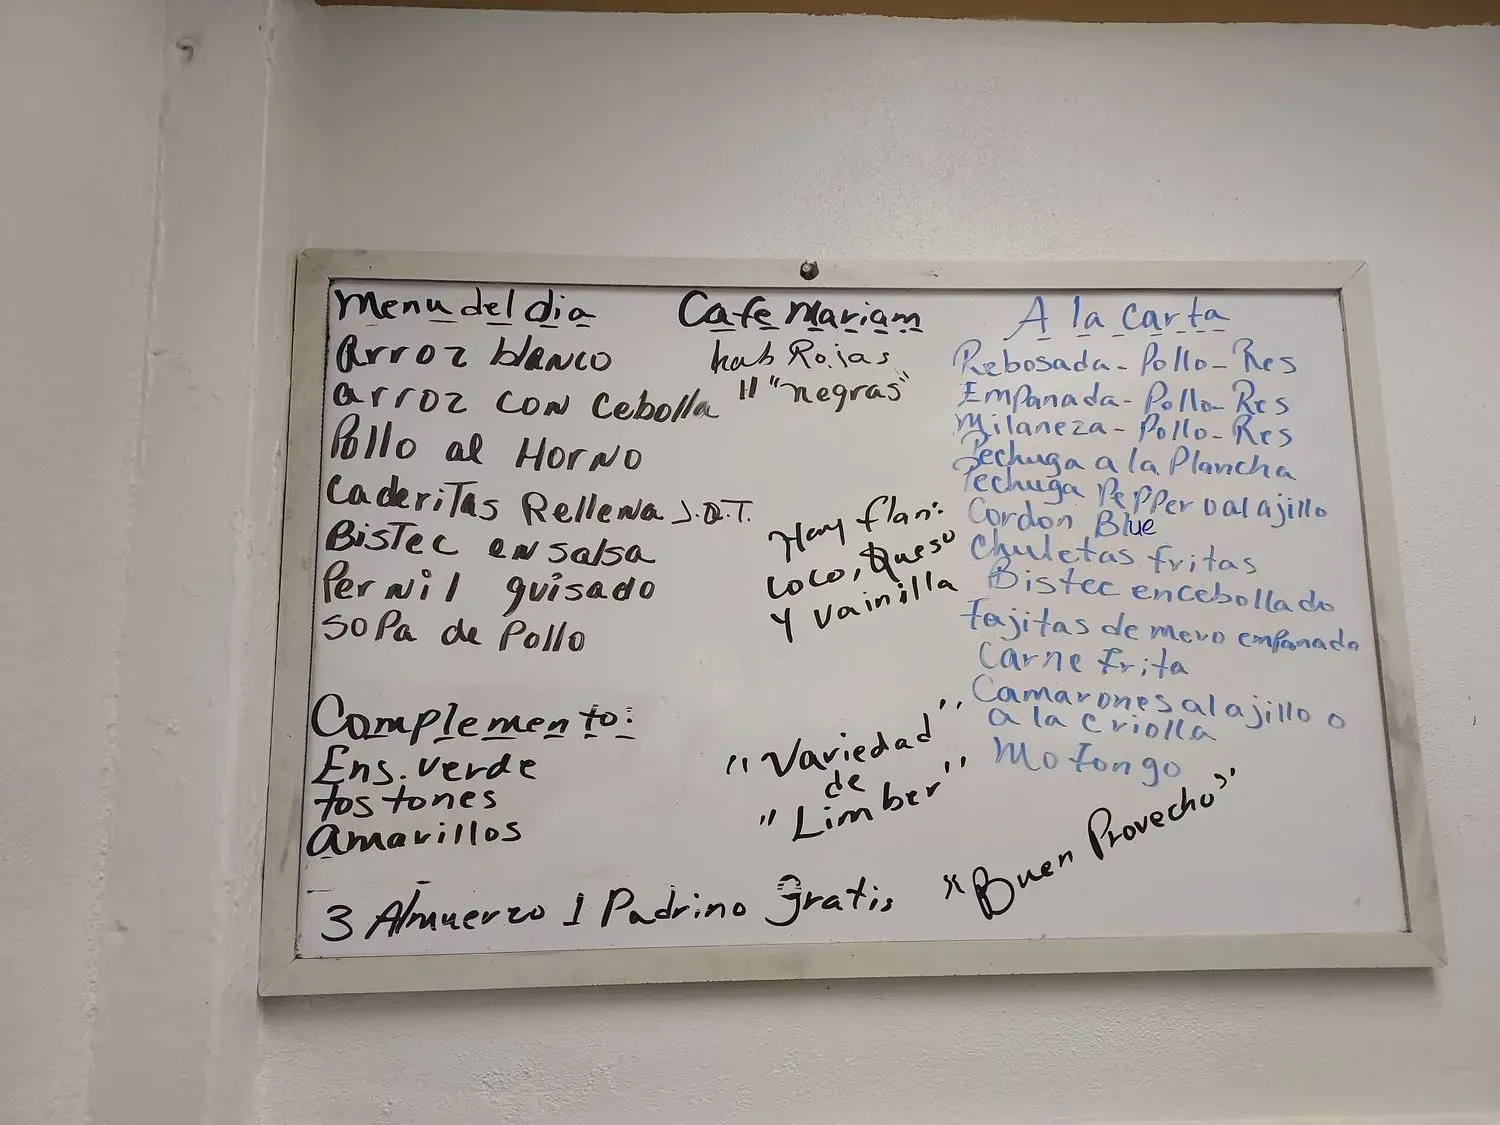 Menu del dia
Arroz blanco
arroz con cebolla
Pollo al Horno
Caderitas Rellena J.Q.T.
BisTec en salsa
Pernil guisado
soPa de Pollo
Complemento:
Ens. verde
tostones
amarillos
3 Almuerzo 1 Padrino gratis
Cafe Mariam
hab Rojas
" "negras"
Hay flan:
coco, Queso
y vainilla
"Variedad"
de
"Limber"
A la carta
Rebosada - Pollo - Res
Empanada - Pollo - Res
Milaneza - Pollo - Res
Pechuga a la Plancha
Pechuga Pepper o al ajillo
Cordon Blue
Chuletas fritas
Bistec encebollado
Fajitas de mero empanada
Carne frita
Camarones al ajillo o
a la criolla
Mofongo
"Buen Provecho"